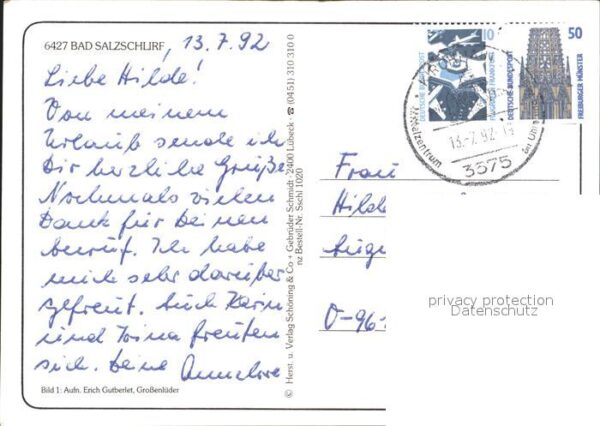 6427 BAD SALZSCHLIRF, 13.7.92
Liebe Hilde!
Von meinem
Urlaub sende ich
Dir herzliche Grüße
Nochmals vielen
Dank für Deinen
Ich habe
mich sehr darüber
gefreut. Auch Karin
und Irina freuten
sich. Deine Annelore
Bild 1: Aufn. Erich Gutberlet, Großenlüder
© Herst. u. Verlag Schöning & Co + Gebrüder Schmidt · 2400 Lübeck · ☎ (0451) 310 310 0
nz Bestell-Nr. Sschl 1020
10
DEUTSCHE BUNDESPOST
50
DEUTSCHE BUNDESPOST
FREIBURGER MÜNSTER
13.-7.92
3575
Frau
Hilde
O-96
privacy protection
Datenschutz